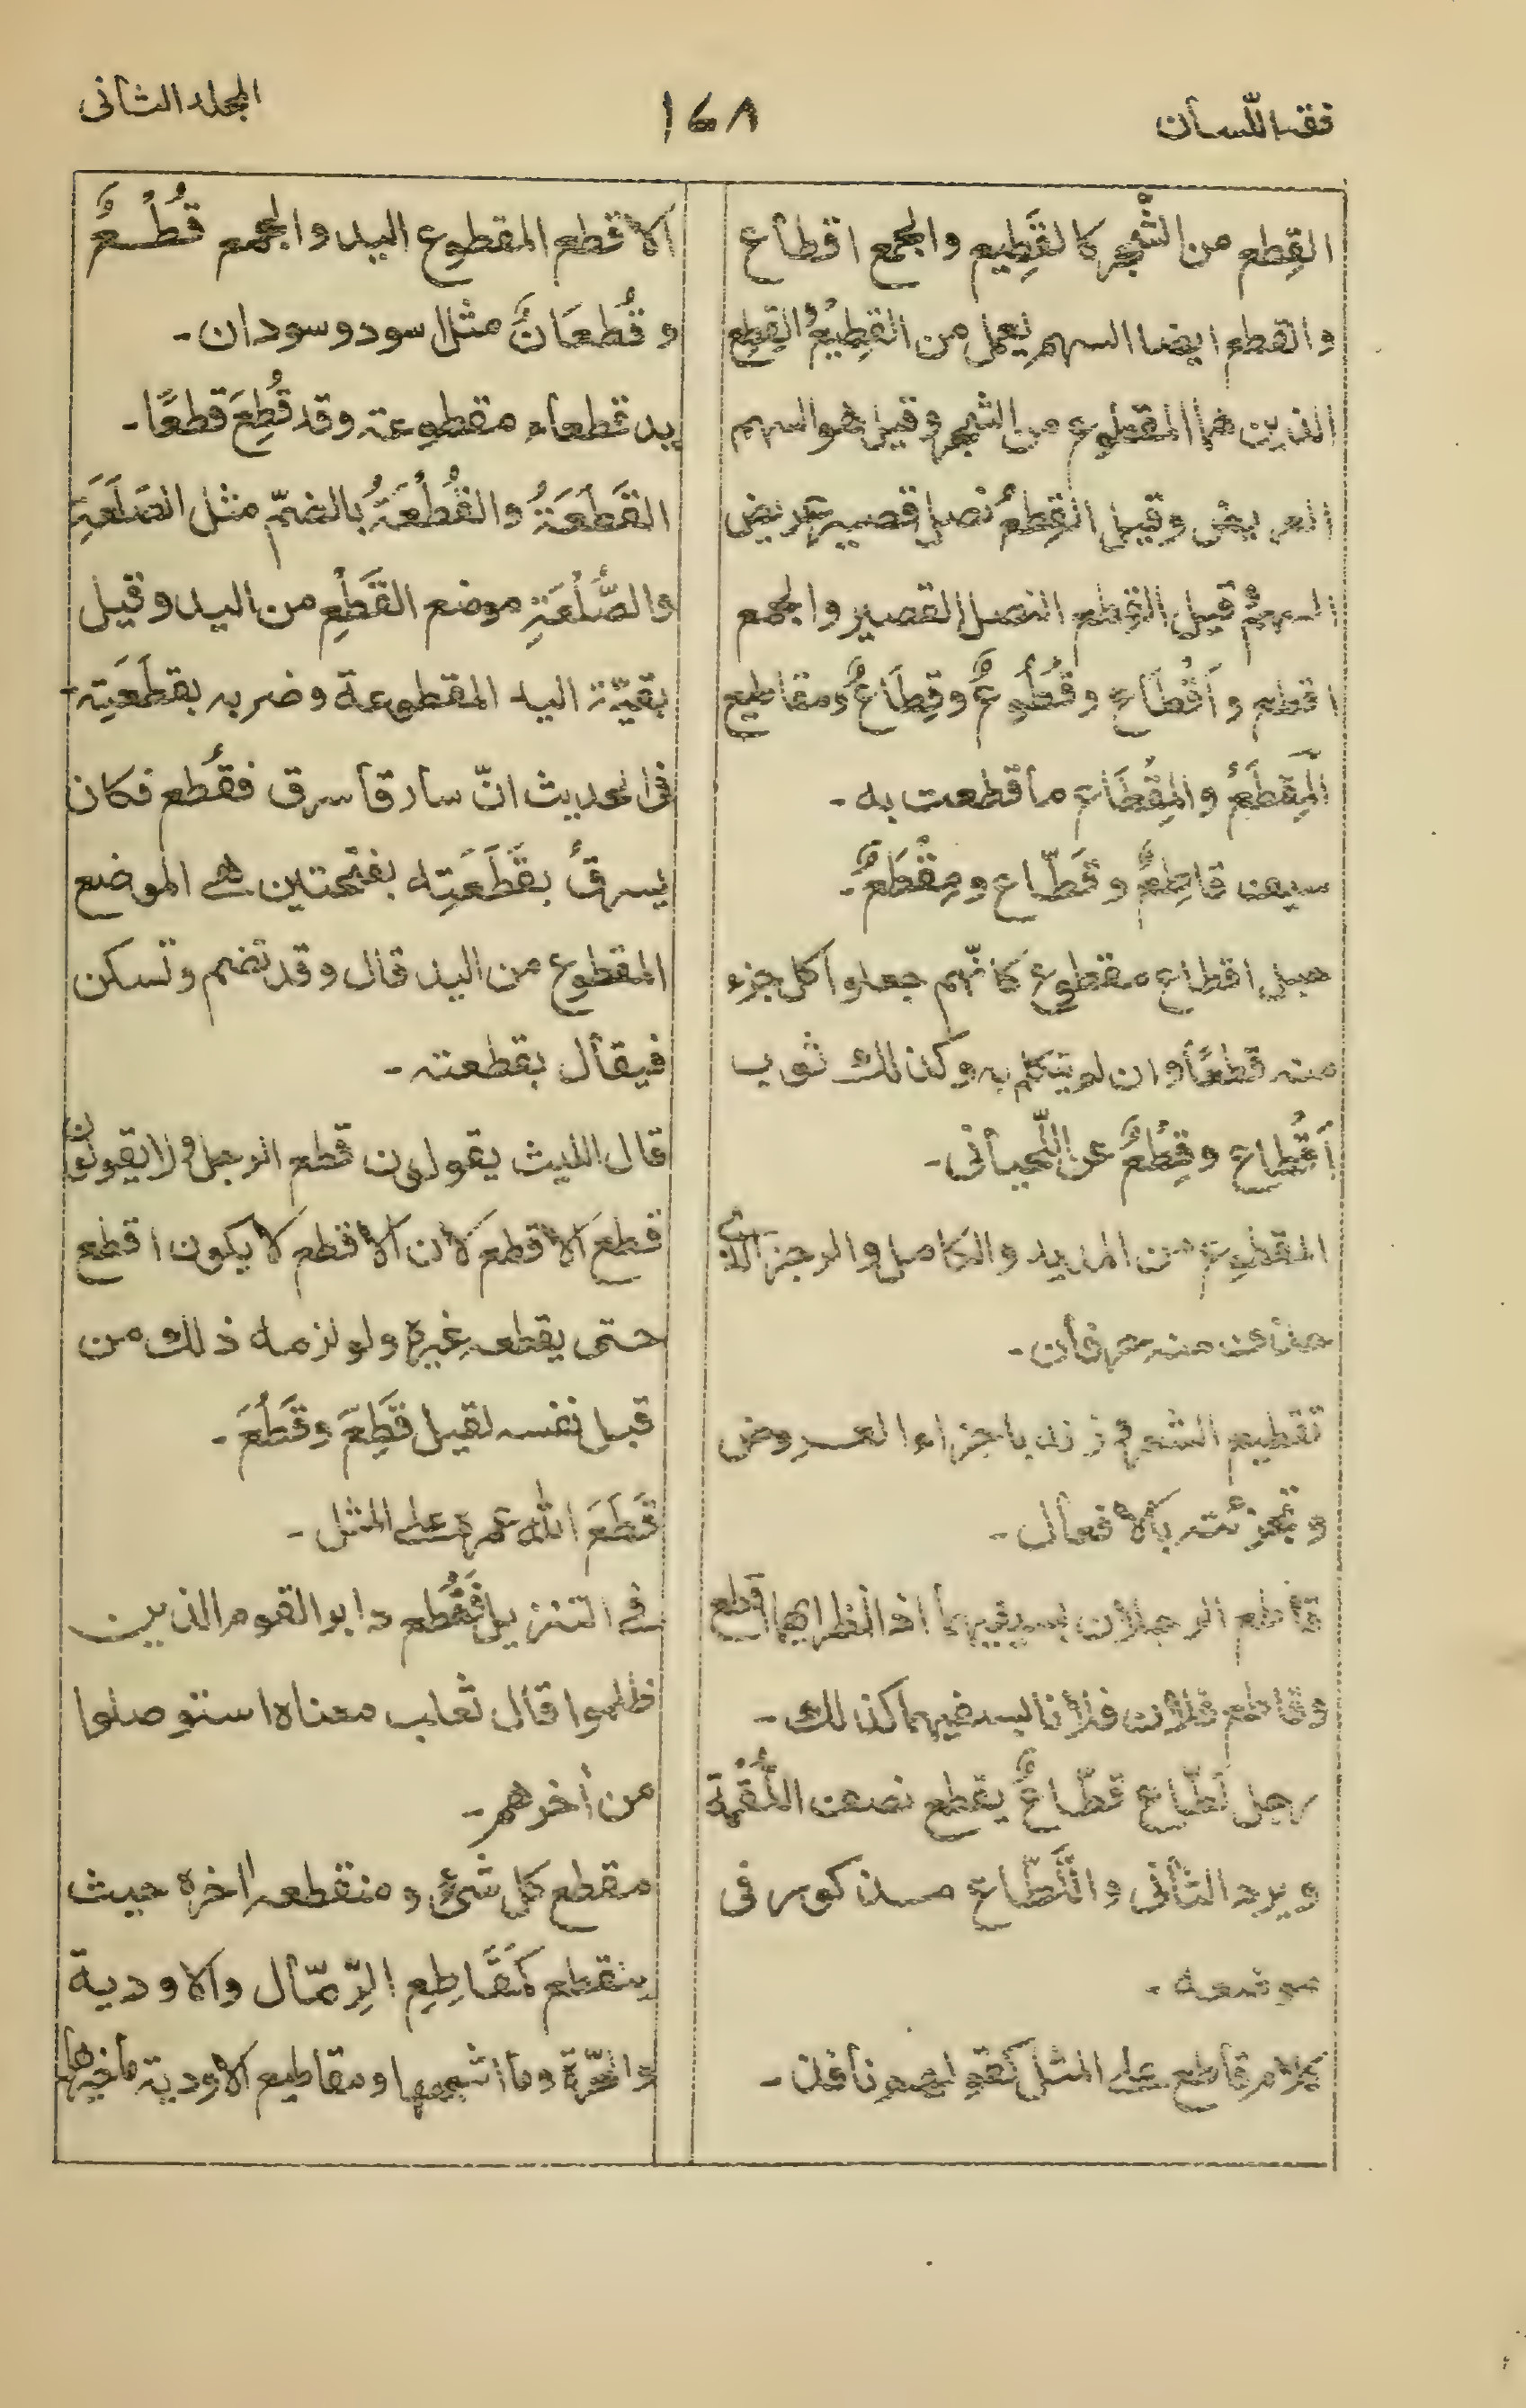 فقه اللّسان
١٤٨
المجلد الثانی
القِطع من الشّجر كالقَطِيع والجمع اقطاع
والقطع ايضا السهم يعمل من القَطِيعُ والقِطع
الذين هما المقطوع من الشجر وقيل هو السهم
العريض وقيل القِطعُ نصل قصير عريض
السهم قيل القِطع النصل القصير والجمع
اقطع و اَقْطَاع وقُطُوعٌ وقِطَاعٌ ومقاطيع
المِقطَعُ والمِقْطَاع ما قطعت به ۔
سيف قاطِعٌ و قَطّاع ومِقْطَعٌ ۔
حبل اقطاع مقطوع كانّهم جعلوا كل جزء
منه قطعًا وان لم يتكلم به وكذلك ثوب
أقْطاع وقِطْعٌ عن اللّحيانی ۔
المقطوع من المديد والكامل والرجز الذی
حذف منه حرفان ۔
تقطيع الشعر وزنه باجزاء العروض
وتجزئته بالافعال ۔
قاطع الرجلان بسيفيهما اذا نظرا يهما اقطع
وقاطع فلان فلانا بسيفيهما كذلك ۔
رجل لَطّاع قطّاعٌ يقطع نصف اللُّقْمة
ويرد الثانی واللَّطّاع مذكور فی
موضعه ۔
كلام قاطع على المثل كقولهم نافذ ۔
الاقطع المقطوع اليد والجمع قُطْعٌ
وقُطعَانٌ مثل اسود وسودان ۔
يد قطعاء مقطوعة وقد قُطِعَ قطعًا ۔
القَطَعَةُ والقُطْعَةُ بالضمّ مثل الصَلَعَةِ
والصُّلْعَةِ موضع القَطْعِ من اليد وقيل
بقيّة اليد المقطوعة وضربه بقطَعَتِه ۔
فی الحديث انّ سارقا سرق فقُطع فكان
يسرق بقَطَعَتِه بفتحتين هی الموضع
المقطوع من اليد قال وقد تضم وتسكن
فيقال بقطعته ۔
قال الليث يقولون قطع الرجل ولا يقولون
قطع الاقطع لان الاقطع لا يكون اقطع
حتى يقطعه غيره ولو لزمه ذلك من
قبل نفسه لقيل قَطِعَ وقَطُعَ ۔
قَطَعَ الله عمره على المثل ۔
فی التنزيل فَقُطع دابر القوم الذين
ظلموا قال ثعلب معناه استوصلوا
من أخرهم ۔
مقطع كل شئ ومنقطعه اخره حيث
ينقطع كمَقَاطِعِ الرِّمَال والاودية
والحَرّة وما اشبهها ومقاطيع الاودية مأخيرها